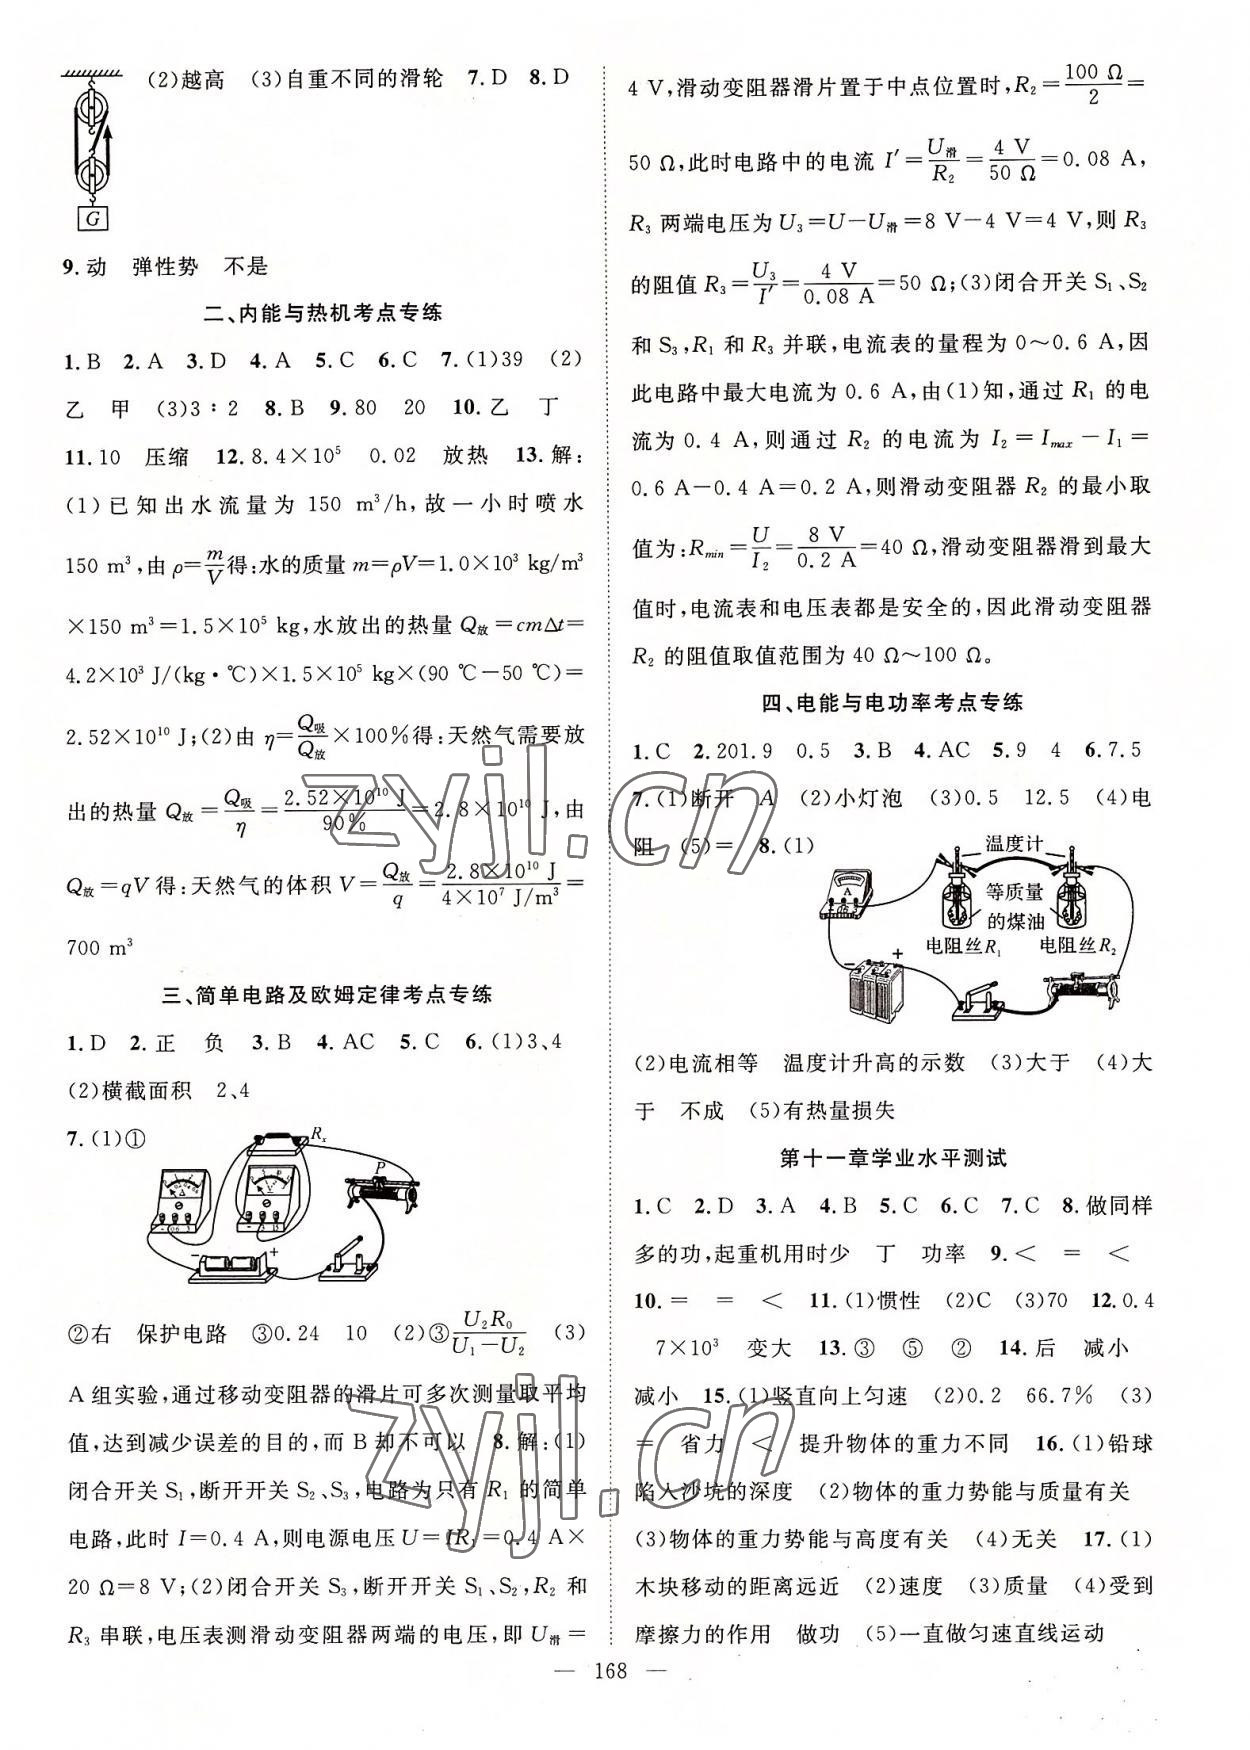 (2)越高 (3)自重不同的滑轮 7.D 8.D
G
9.动 弹性势 不是
二、内能与热机考点专练
1.B 2.A 3.D 4.A 5.C 6.C 7.(1)39 (2)
乙 甲 (3)3∶2 8.B 9.80 20 10.乙 丁
11.10 压缩 12.8.4×10⁵ 0.02 放热 13.解:
(1)已知出水流量为 150 m³/h,故一小时喷水
150 m³,由 ρ=m/V得:水的质量 m=ρV=1.0×10³ kg/m³
×150 m³=1.5×10⁵ kg,水放出的热量 Q放=cmΔt=
4.2×10³ J/(kg·℃)×1.5×10⁵ kg×(90 ℃-50 ℃)=
2.52×10¹⁰ J;(2)由 η=Q吸/Q放×100%得:天然气需要放
出的热量 Q放=Q吸/η=2.52×10¹⁰ J/90%=2.8×10¹⁰ J,由
Q放=qV得:天然气的体积 V=Q放/q=2.8×10¹⁰ J/4×10⁷ J/m³=
700 m³
三、简单电路及欧姆定律考点专练
1.D 2.正 负 3.B 4.AC 5.C 6.(1)3、4
(2)横截面积 2、4
7.(1)①
Rₓ
P
A
V
- +
②右 保护电路 ③0.24 10 (2)③U₂R₀/U₁-U₂ (3)
A 组实验,通过移动变阻器的滑片可多次测量取平均
值,达到减少误差的目的,而 B 却不可以 8.解:(1)
闭合开关 S₁,断开开关 S₂、S₃,电路为只有 R₁ 的简单
电路,此时 I=0.4 A,则电源电压 U=IR₁=0.4 A×
20 Ω=8 V;(2)闭合开关 S₃,断开开关 S₁、S₂,R₂ 和
R₃ 串联,电压表测滑动变阻器两端的电压,即 U滑=
4 V,滑动变阻器滑片置于中点位置时,R₂=100 Ω/2=
50 Ω,此时电路中的电流 I′=U滑/R₂=4 V/50 Ω=0.08 A,
R₃ 两端电压为 U₃=U-U滑=8 V-4 V=4 V,则 R₃
的阻值 R₃=U₃/I′=4 V/0.08 A=50 Ω;(3)闭合开关 S₁、S₂
和 S₃,R₁ 和 R₃ 并联,电流表的量程为 0～0.6 A,因
此电路中最大电流为 0.6 A,由(1)知,通过 R₁ 的电
流为 0.4 A,则通过 R₂ 的电流为 I₂=Imax-I₁=
0.6 A-0.4 A=0.2 A,则滑动变阻器 R₂ 的最小取
值为:Rmin=U/I₂=8 V/0.2 A=40 Ω,滑动变阻器滑到最大
值时,电流表和电压表都是安全的,因此滑动变阻器
R₂ 的阻值取值范围为 40 Ω～100 Ω。
四、电能与电功率考点专练
1.C 2.201.9 0.5 3.B 4.AC 5.9 4 6.7.5
7.(1)断开 A (2)小灯泡 (3)0.5 12.5 (4)电
阻 (5)= 8.(1)
温度计
A
等质量
的煤油
电阻丝R₁ 电阻丝R₂
- +
(2)电流相等 温度计升高的示数 (3)大于 (4)大
于 不成 (5)有热量损失
第十一章学业水平测试
1.C 2.D 3.A 4.B 5.C 6.C 7.C 8.做同样
多的功,起重机用时少 丁 功率 9.< = <
10.= = < 11.(1)惯性 (2)C (3)70 12.0.4
7×10³ 变大 13.③ ⑤ ② 14.后 减小
减小 15.(1)竖直向上匀速 (2)0.2 66.7% (3)
= 省力 < 提升物体的重力不同 16.(1)铅球
陷入沙坑的深度 (2)物体的重力势能与质量有关
(3)物体的重力势能与高度有关 (4)无关 17.(1)
木块移动的距离远近 (2)速度 (3)质量 (4)受到
摩擦力的作用 做功 (5)一直做匀速直线运动
— 168 —
zyjl.cn
zyjl.cn